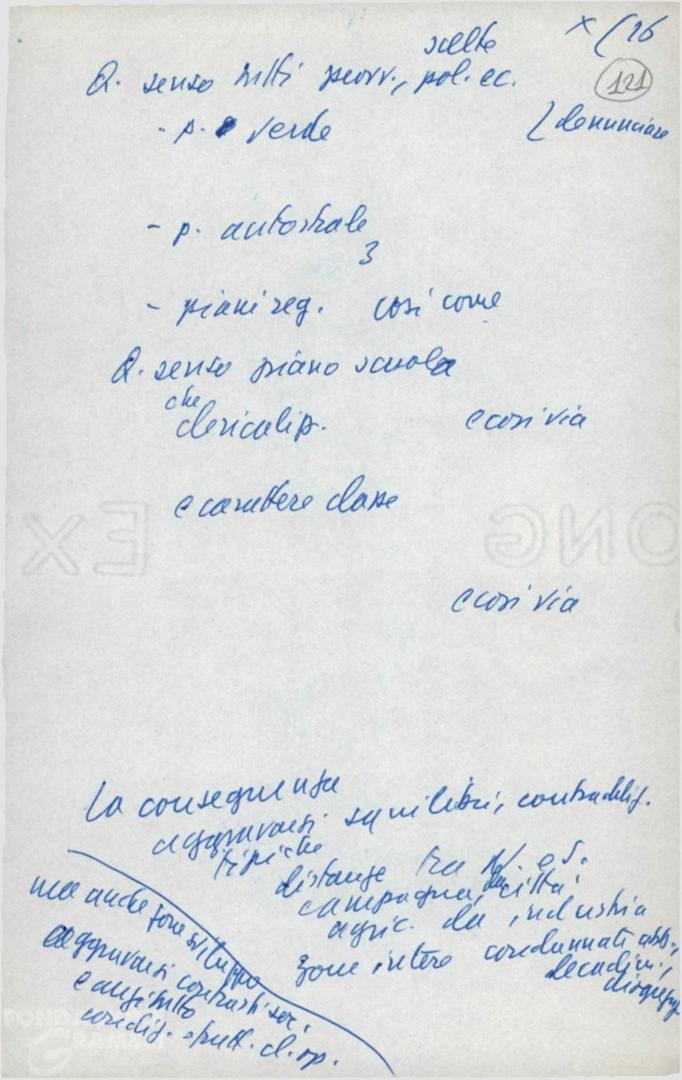 x (26
121
scelte
Q. senso tutti provv., pol. ec.
- p. verde
denunciare
- p. autostrale
3
- piani reg. così come
Q. senso piano scuola
che
clericaliz.
e così via
e carattere classe
e così via
EX
ONG
La conseguenza
aggravarsi squilibri, contraddiz.
tipiche
distanze tra N. e S.
campagna, da città,
agric. da industria
zone intere condannate abb.,
decadim.,
disgregaz.
ma anche zone sviluppo
aggravarsi contrasti soc.
e anzitutto
condiz. sfrutt. cl. op.
FONDAZIONE
GRAMSCI